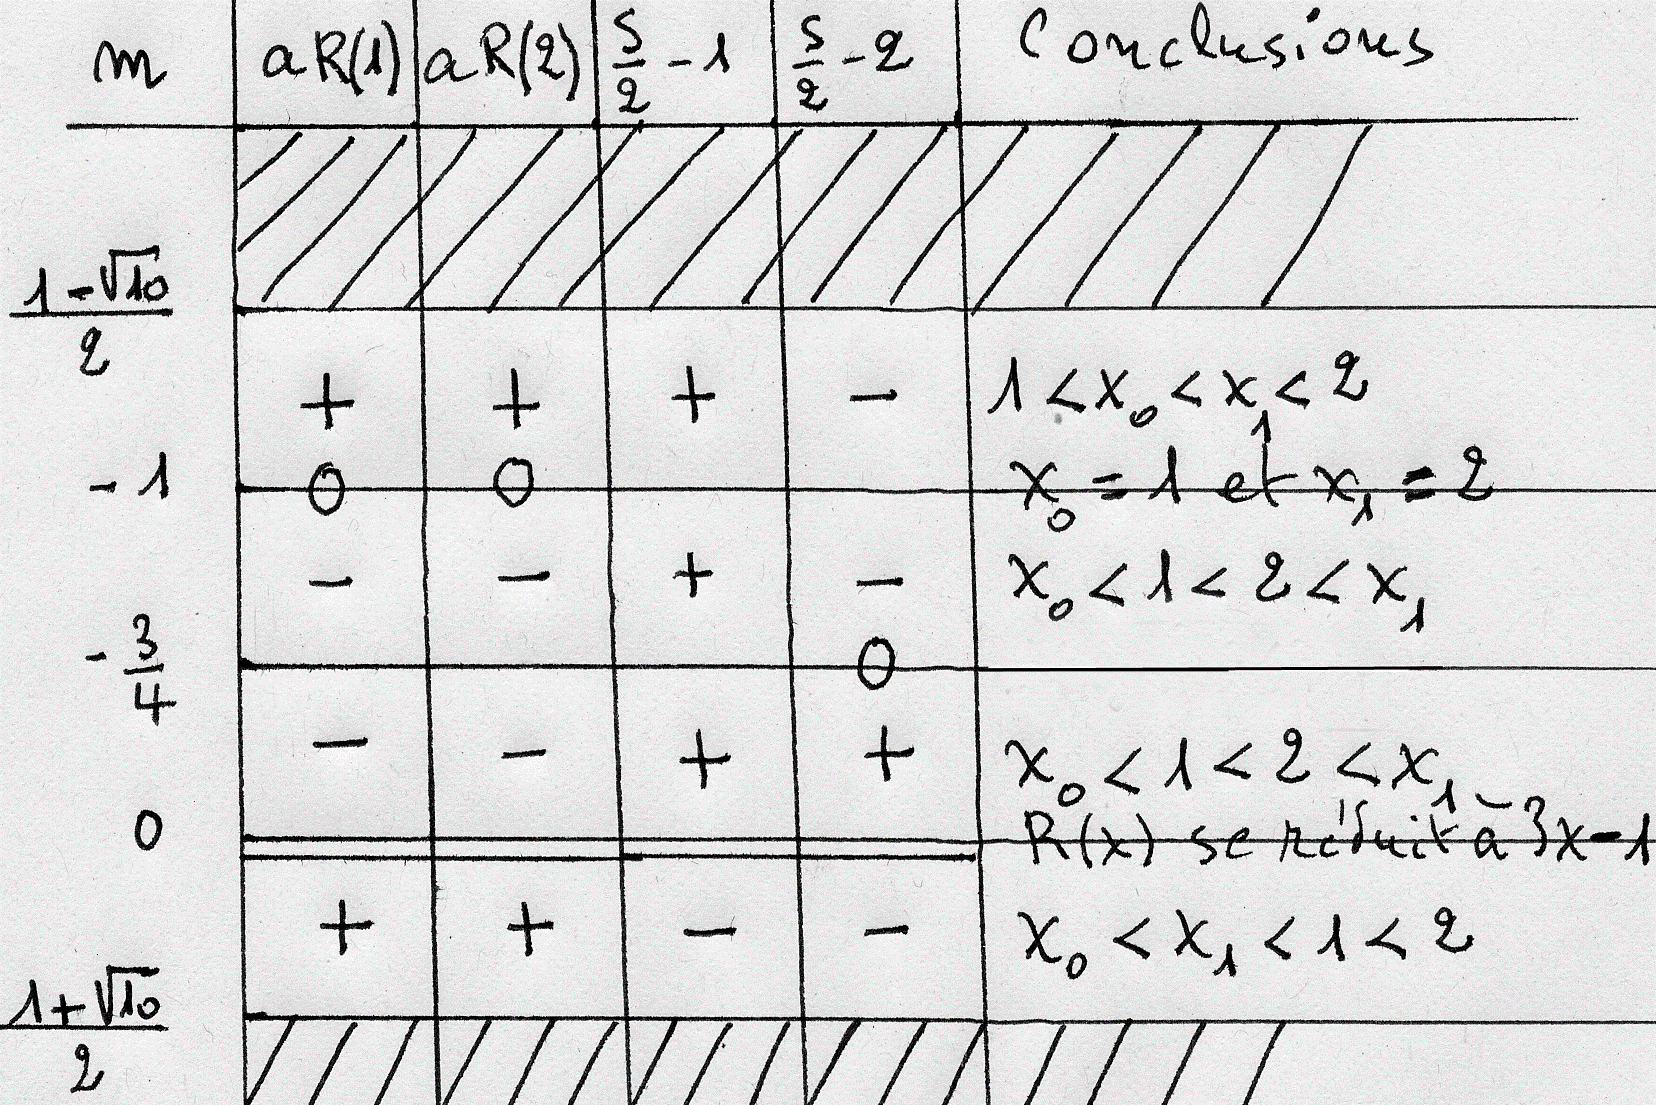 m aR(1) aR(2) s/2 - 1 s/2 - 2 Conclusions
(1-√10)/2
+ + + - 1 < x₀ < x₁ < 2
-1 0 0 x₀ = 1 et x₁ = 2
- - + - x₀ < 1 < 2 < x₁
-3/4 0
- - + + x₀ < 1 < 2 < x₁
0 R(x) se réduit à 3x-1
+ + - - x₀ < x₁ < 1 < 2
(1+√10)/2